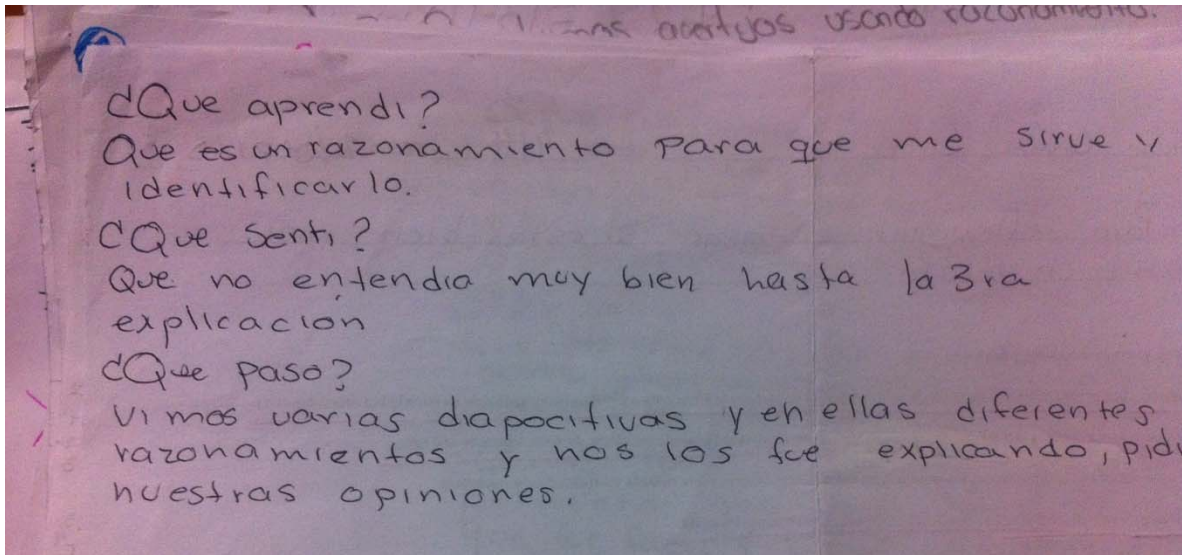 acertijos usando razonamiento.
¿Que aprendi?
Que es un razonamiento para que me sirve y
identificarlo.
¿Que senti?
Que no entendia muy bien hasta la 3ra
explicacion
¿Que paso?
Vimos varias diapocitivas y en ellas diferentes
razonamientos y nos los fue explicando,
nuestras opiniones.